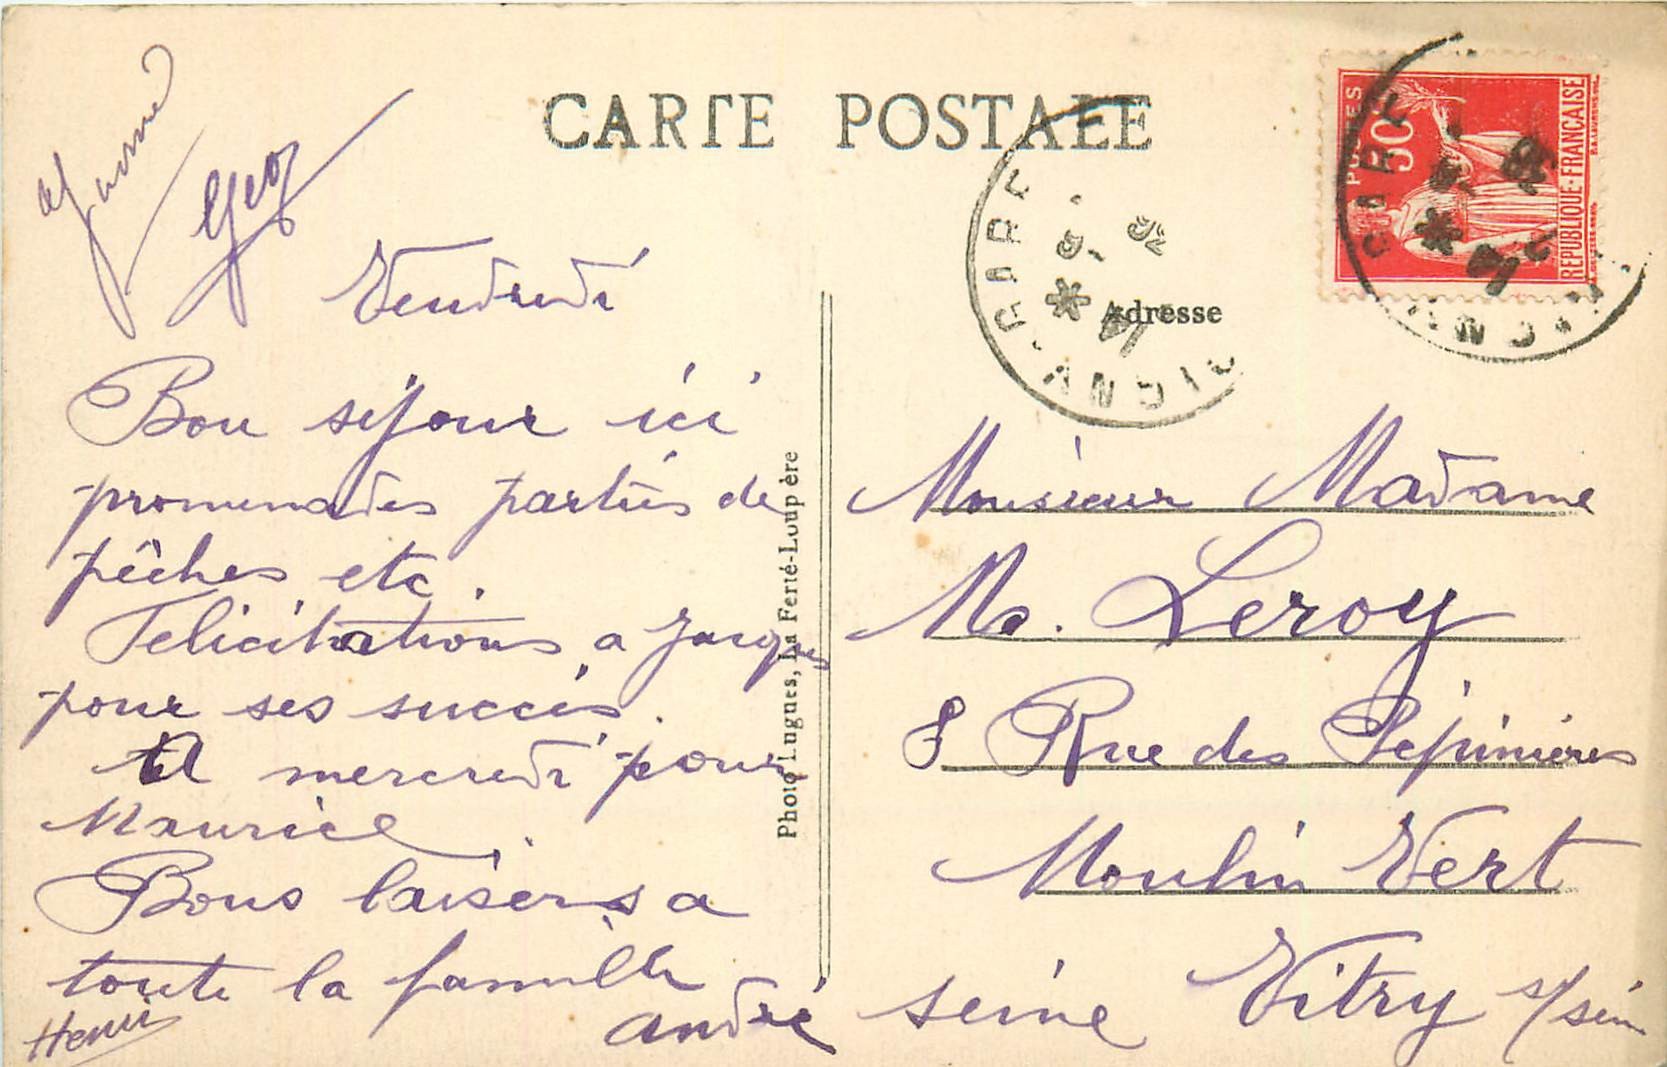 CARTE POSTALE
Geo
Vendredi
Bon séjour ici
promenades parties de
pêches etc.
Felicitations a Jacques
pour ses succès.
A mercredi pour
Maurice.
Bons baisers a
toute la famille
André
Henri
Photo Lugues, La Ferté-Loupère
Adresse
Monsieur Madame
M. Leroy
8 Rue des Pépinières
Moulin Vert
Vitry s/sein
seine
POSTES
50c
REPUBLIQUE-FRANÇAISE
GARE
GARE